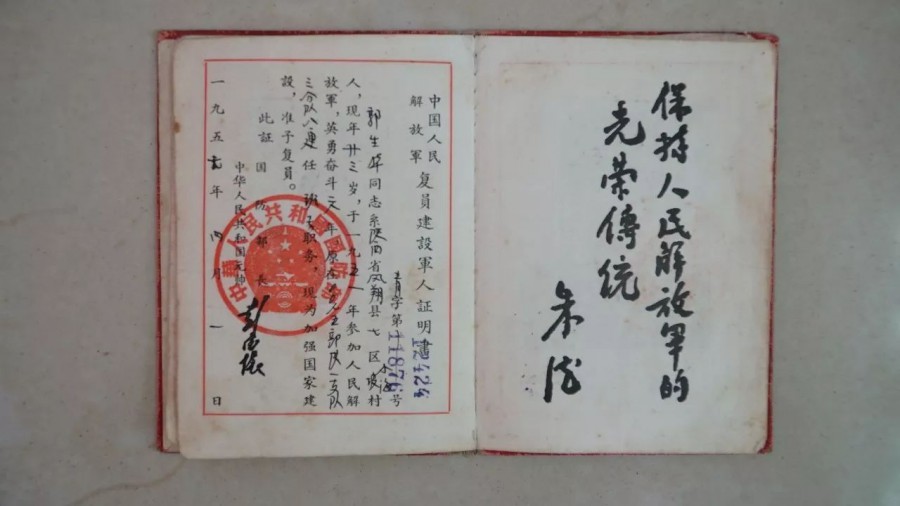 保持人民解放軍的
光荣傳統
朱德
中国人民
解放軍
复員建設軍人証明書
12424
字第11876号
郭生 同志系陝西省凤翔县七区 村
人，現年廿三岁，于一九五一年参加人民解
放軍，英勇奋斗 年，原在 部队一支队
三分队八連任 职务，現为加强国家建
設，准予复員。
此証
国防部長
中华人民共和国元帅
彭德怀
一九五 年 月一日
中華人民共和國國防部